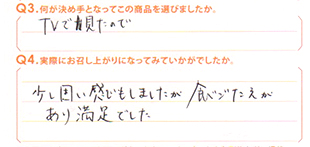 Q3.何が決め手となってこの商品を選びましたか。
TVで観たので
Q4.実際にお召し上がりになってみていかがでしたか。
少し固い感じもしましたが 食べごたえが
あり満足でした